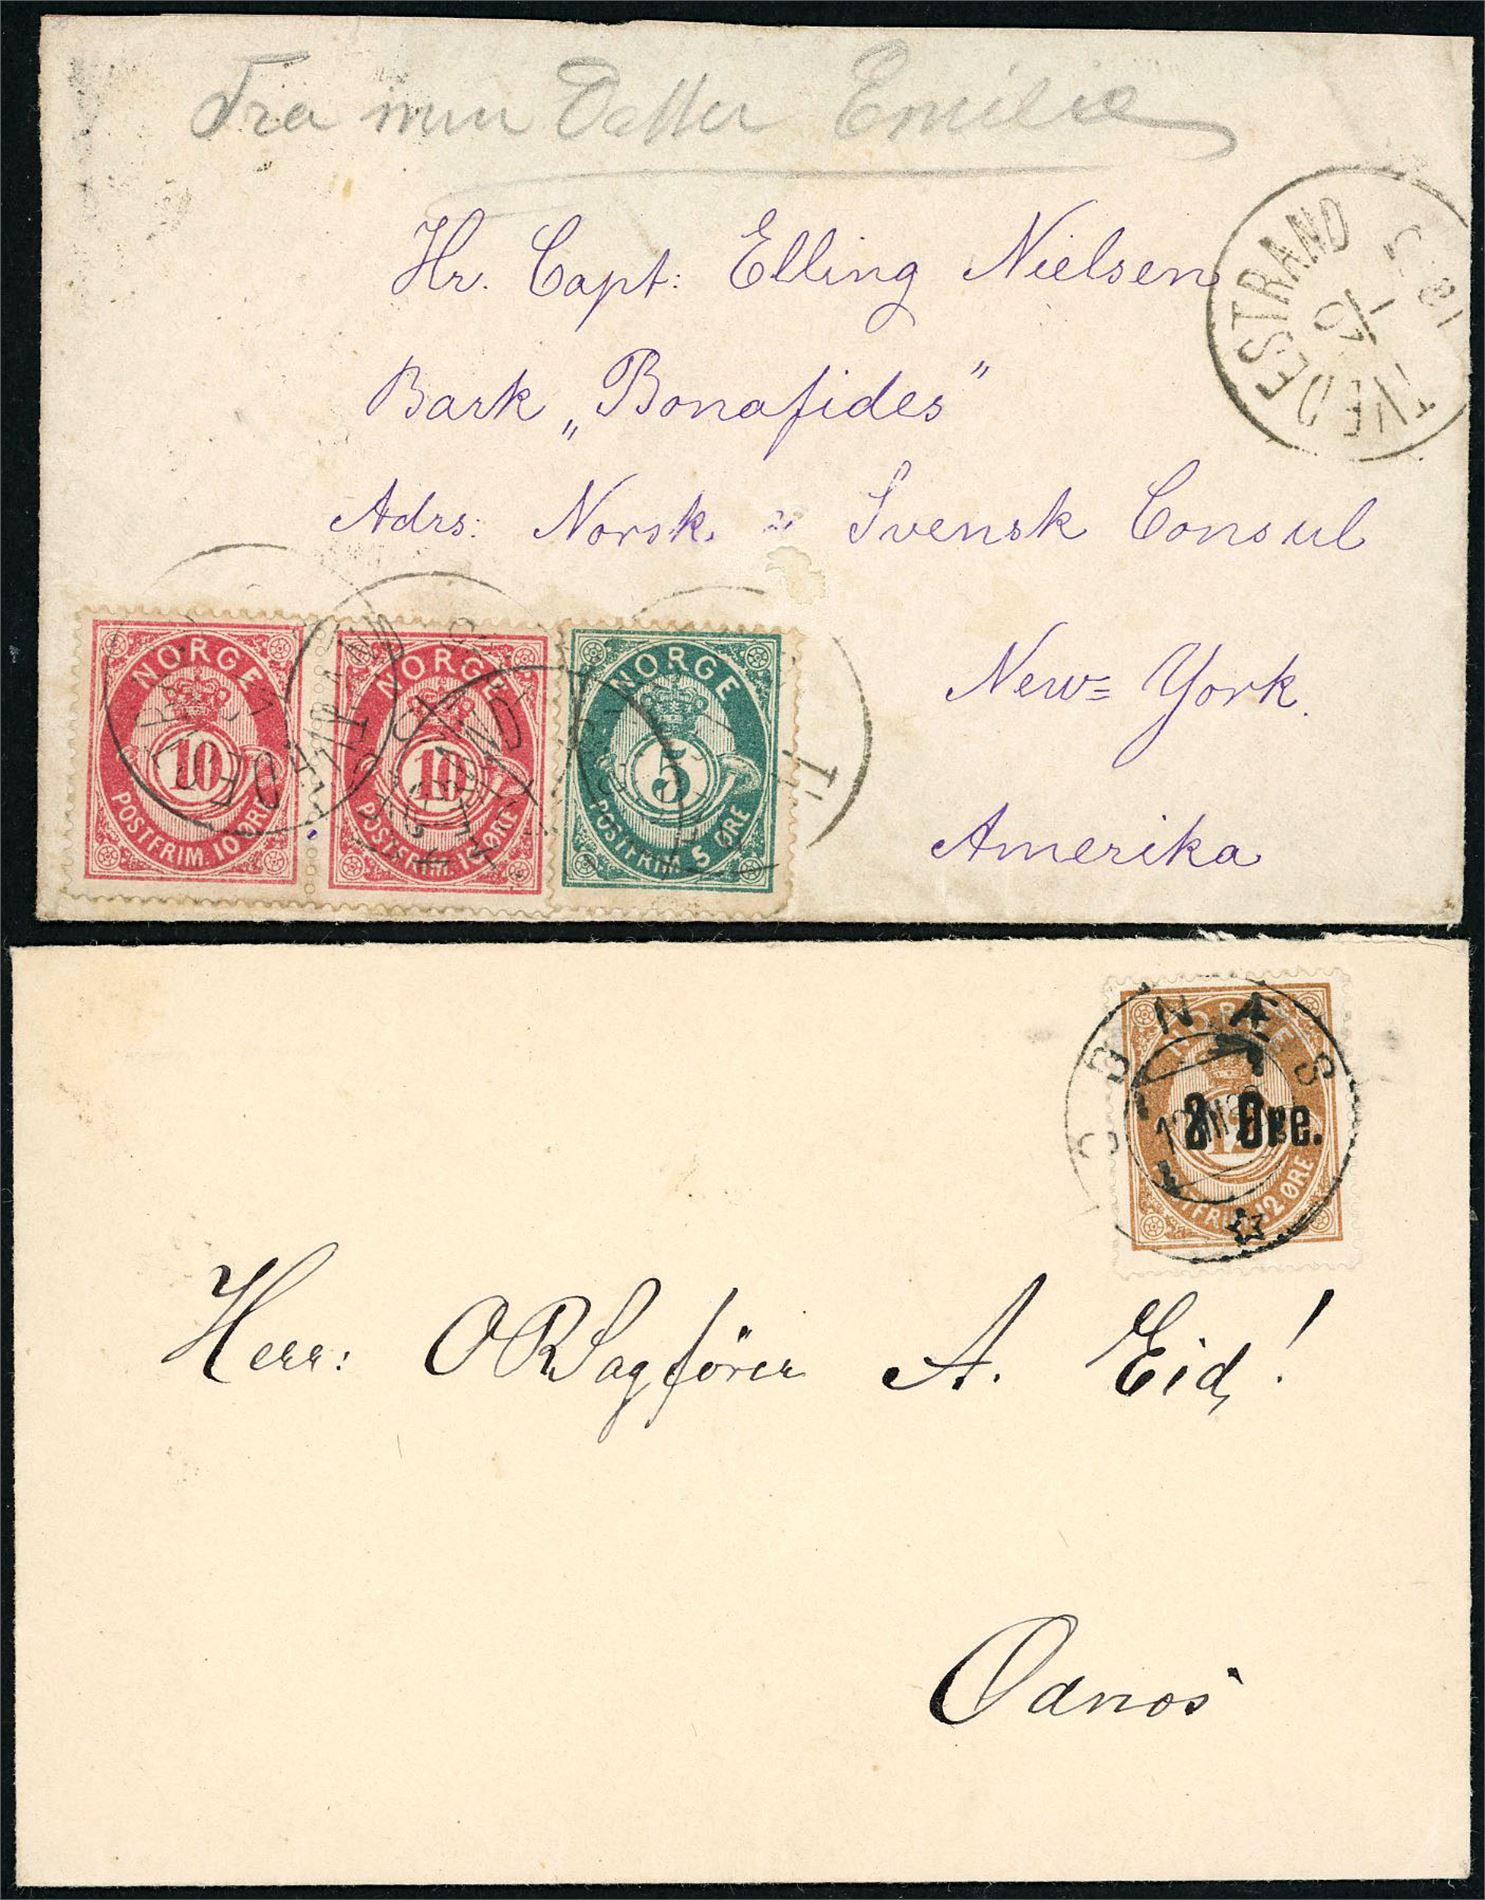 Fra min Datter Emilie
Hr. Capt: Elling Nielsen
Bark „Bonafides”
Adrs: Norsk. = Svensk Consul
New= York.
Amerika
TVEDESTRAND
NORGE
10
POSTFRIM. 10 ØRE
NORGE
10
POSTFRIM. 10 ØRE
NORGE
5
POSTFRIM. 5 ØRE
NORGE
2 Øre.
12
POSTFRIM. 12 ØRE
Herr: ORSagförer A. Eid!
Odnæs